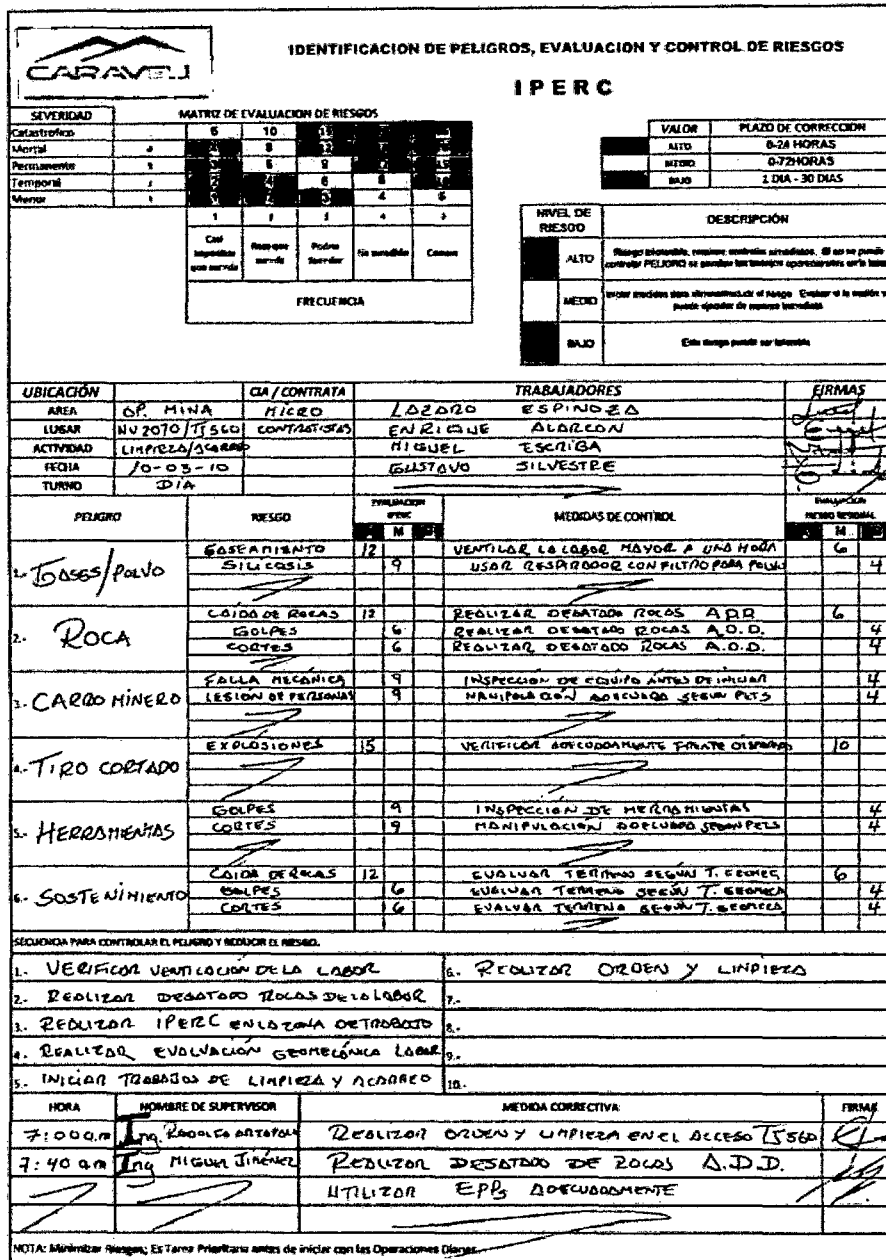 CARAVELI
IDENTIFICACION DE PELIGROS, EVALUACION Y CONTROL DE RIESGOS
IPERC
SEVERIDAD MATRIZ DE EVALUACION DE RIESGOS
Catastrofico 5 10
Mortal 8
Permanente 6 9
Temporal 6 8
Menor 4 5
1 2 3 4 5
Casi imposible que suceda Raro que suceda Podria Suceder Ha sucedido Comun
FRECUENCIA
VALOR PLAZO DE CORRECCION
ALTO 0-24 HORAS
MEDIO 0-72HORAS
BAJO 1 DIA - 30 DIAS
NIVEL DE RIESGO DESCRIPCIÓN
ALTO Riesgo intolerable, requiere controles inmediatos. Si no se puede controlar PELIGRO se paralizan los trabajos operacionales en la
MEDIO
BAJO Este riesgo puede ser tolerable
UBICACIÓN CIA / CONTRATA TRABAJADORES FIRMAS
AREA OP. MINA MICRO LAZARO ESPINOZA
LUGAR NV 2070/TJ560 CONTRATISTAS ENRIQUE ALARCON
ACTIVIDAD LIMPIEZA/ACARREO MIGUEL ESCRIBA
FECHA 10-03-10 GUSTAVO SILVESTRE
TURNO DÍA
PELIGRO RIESGO EVALUACION IPERC MEDIDAS DE CONTROL EVALUACION RIESGO RESIDUAL
A M M
1.- GASES/POLVO GASEAMIENTO 12 VENTILAR LA LABOR MAYOR A UNA HORA 6
SILICOSIS 9 USAR RESPIRADOR CON FILTRO PARA POLVO 4
2.- ROCA CAIDA DE ROCAS 12 REALIZAR DESATADO ROCAS A.D.D. 6
GOLPES 6 REALIZAR DESATADO ROCAS A.D.D. 4
CORTES 6 REALIZAR DESATADO ROCAS A.D.D. 4
3.- CARRO MINERO FALLA MECÁNICA 9 INSPECCION DE EQUIPO ANTES DE INICIAR 4
LESIÓN DE PERSONAS 9 MANIPULACIÓN ADECUADA SEGUN PETS 4
4.- TIRO CORTADO EXPLOSIONES 15 VERIFICAR ADECUADAMENTE FRENTE DISPARADO 10
5.- HERRAMIENTAS GOLPES 9 INSPECCIÓN DE HERRAMIENTAS 4
CORTES 9 MANIPULACIÓN ADECUADA SEGUN PETS 4
6.- SOSTENIMIENTO CAIDA DE ROCAS 12 EVALUAR TERRENO SEGÚN T. GEOMEC. 6
GOLPES 6 EVALUAR TERRENO SEGÚN T. GEOMECA 4
CORTES 6 EVALUAR TERRENO SEGÚN T. GEOMECA 4
SECUENCIA PARA CONTROLAR EL PELIGRO Y REDUCIR EL RIESGO.
1.- VERIFICAR VENTILACION DE LA LABOR 6.- REALIZAR ORDEN Y LINPIEZA
2.- REALIZAR DESATADO ROCAS DE LA LABOR 7.-
3.- REALIZAR IPERC EN LA ZONA DE TRABAJO 8.-
4.- REALIZAR EVALUACIÓN GEOMECÁNICA LABOR 9.-
5.- INICIAR TRABAJOS DE LIMPIEZA Y ACARREO 10.-
HORA NOMBRE DE SUPERVISOR MEDIDA CORRECTIVA FIRMA
7:00 a.m Ing. RODOLFO REALIZAR ORDEN Y LIMPIEZA EN EL ACCESO TJ560
7:40 am Ing MIGUEL JIMÉNEZ REALIZAR DESATADO DE ROCAS A.D.D.
UTILIZAR EPPs ADECUADAMENTE
NOTA: Minimizar Riesgos; Es Tarea Prioritaria antes de iniciar con las Operaciones Diarias.